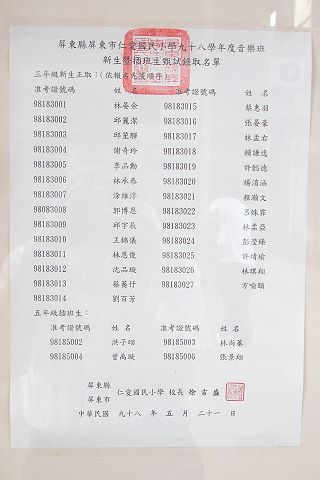 屏東縣屏東市仁愛國民小學九十八學年度音樂班
新生暨插班生甄試錄取名單
三年級新生正取：(依報名先後順序)
准考證號碼 姓 名 准考證號碼 姓 名
98183001 林晏余 98183015 蔡惠羽
98183002 邱麗潔 98183016 張晏豪
98183003 邱荃驊 98183017 林孟右
98183004 謝奇玲 98183018 賴謙逸
98183005 李品勳 98183019 許懿德
98183006 林承恭 98183020 楊淯涵
98183007 涂維淳 98183021 程瀚文
98083008 郭博恩 98183022 呂姝霏
98183009 邱宇辰 98183023 林柔亞
98183010 王錦儀 98183024 彭瀅臻
98183011 林恩俊 98183025 許靖瑜
98183012 沈品璇 98183026 林琪翔
98183013 蔡喬伃 98183027 方喻頤
98183014 劉百芳
五年級插班生：
准考證號碼 姓 名 准考證號碼 姓 名
98185002 洪子珝 98185003 林尚蓁
98185004 曾禹璇 98185006 張景翔
屏東縣
屏東市 仁愛國民小學 校長 徐吉盛
中華民國 九十八 年 五 月 二十一 日